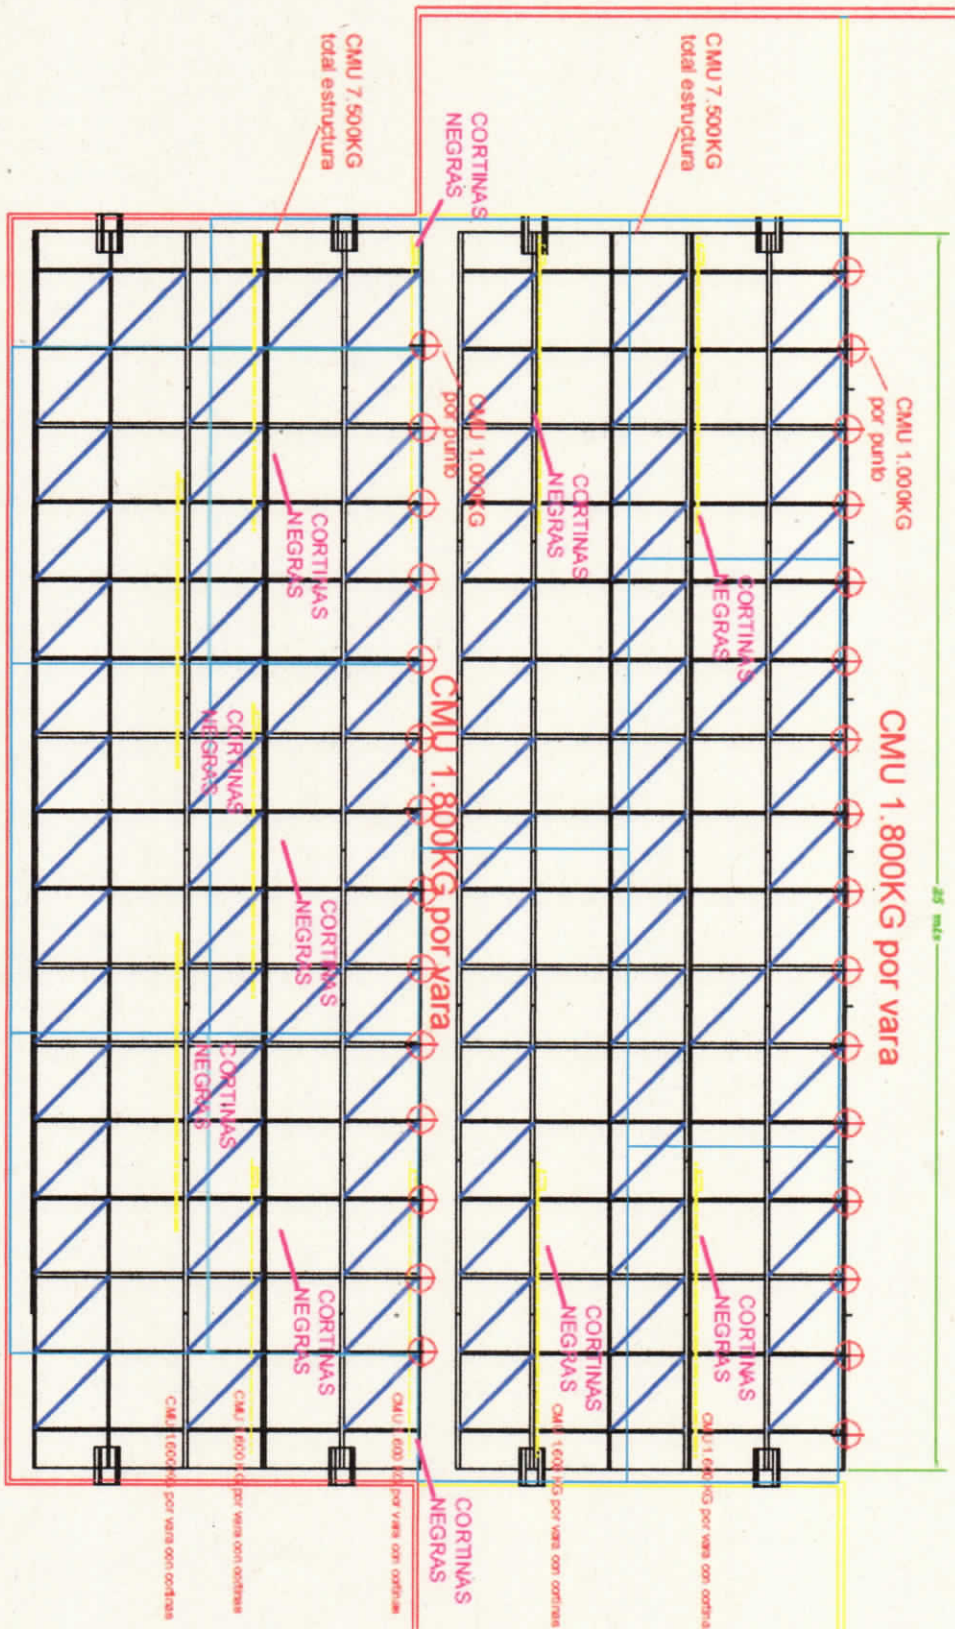 CMU 7.500KG
total estructura
CMU 7.500KG
total estructura
CORTINAS
NEGRAS
CMU 1.000KG
por punto
CMU 1.000KG
por punto
CORTINAS
NEGRAS
CORTINAS
NEGRAS
CORTINAS
NEGRAS
25 mts
CMU 1.800KG por vara
CMU 1.800KG por vara
CORTINAS
NEGRAS
CORTINAS
NEGRAS
CORTINAS
NEGRAS
CORTINAS
NEGRAS
CORTINAS
NEGRAS
CORTINAS
NEGRAS
CORTINAS
NEGRAS
KG por vara con cortinas
CMU 1.600 KG por vara con cortinas
por vara con cortinas
por vara con cortinas
por vara con cortinas